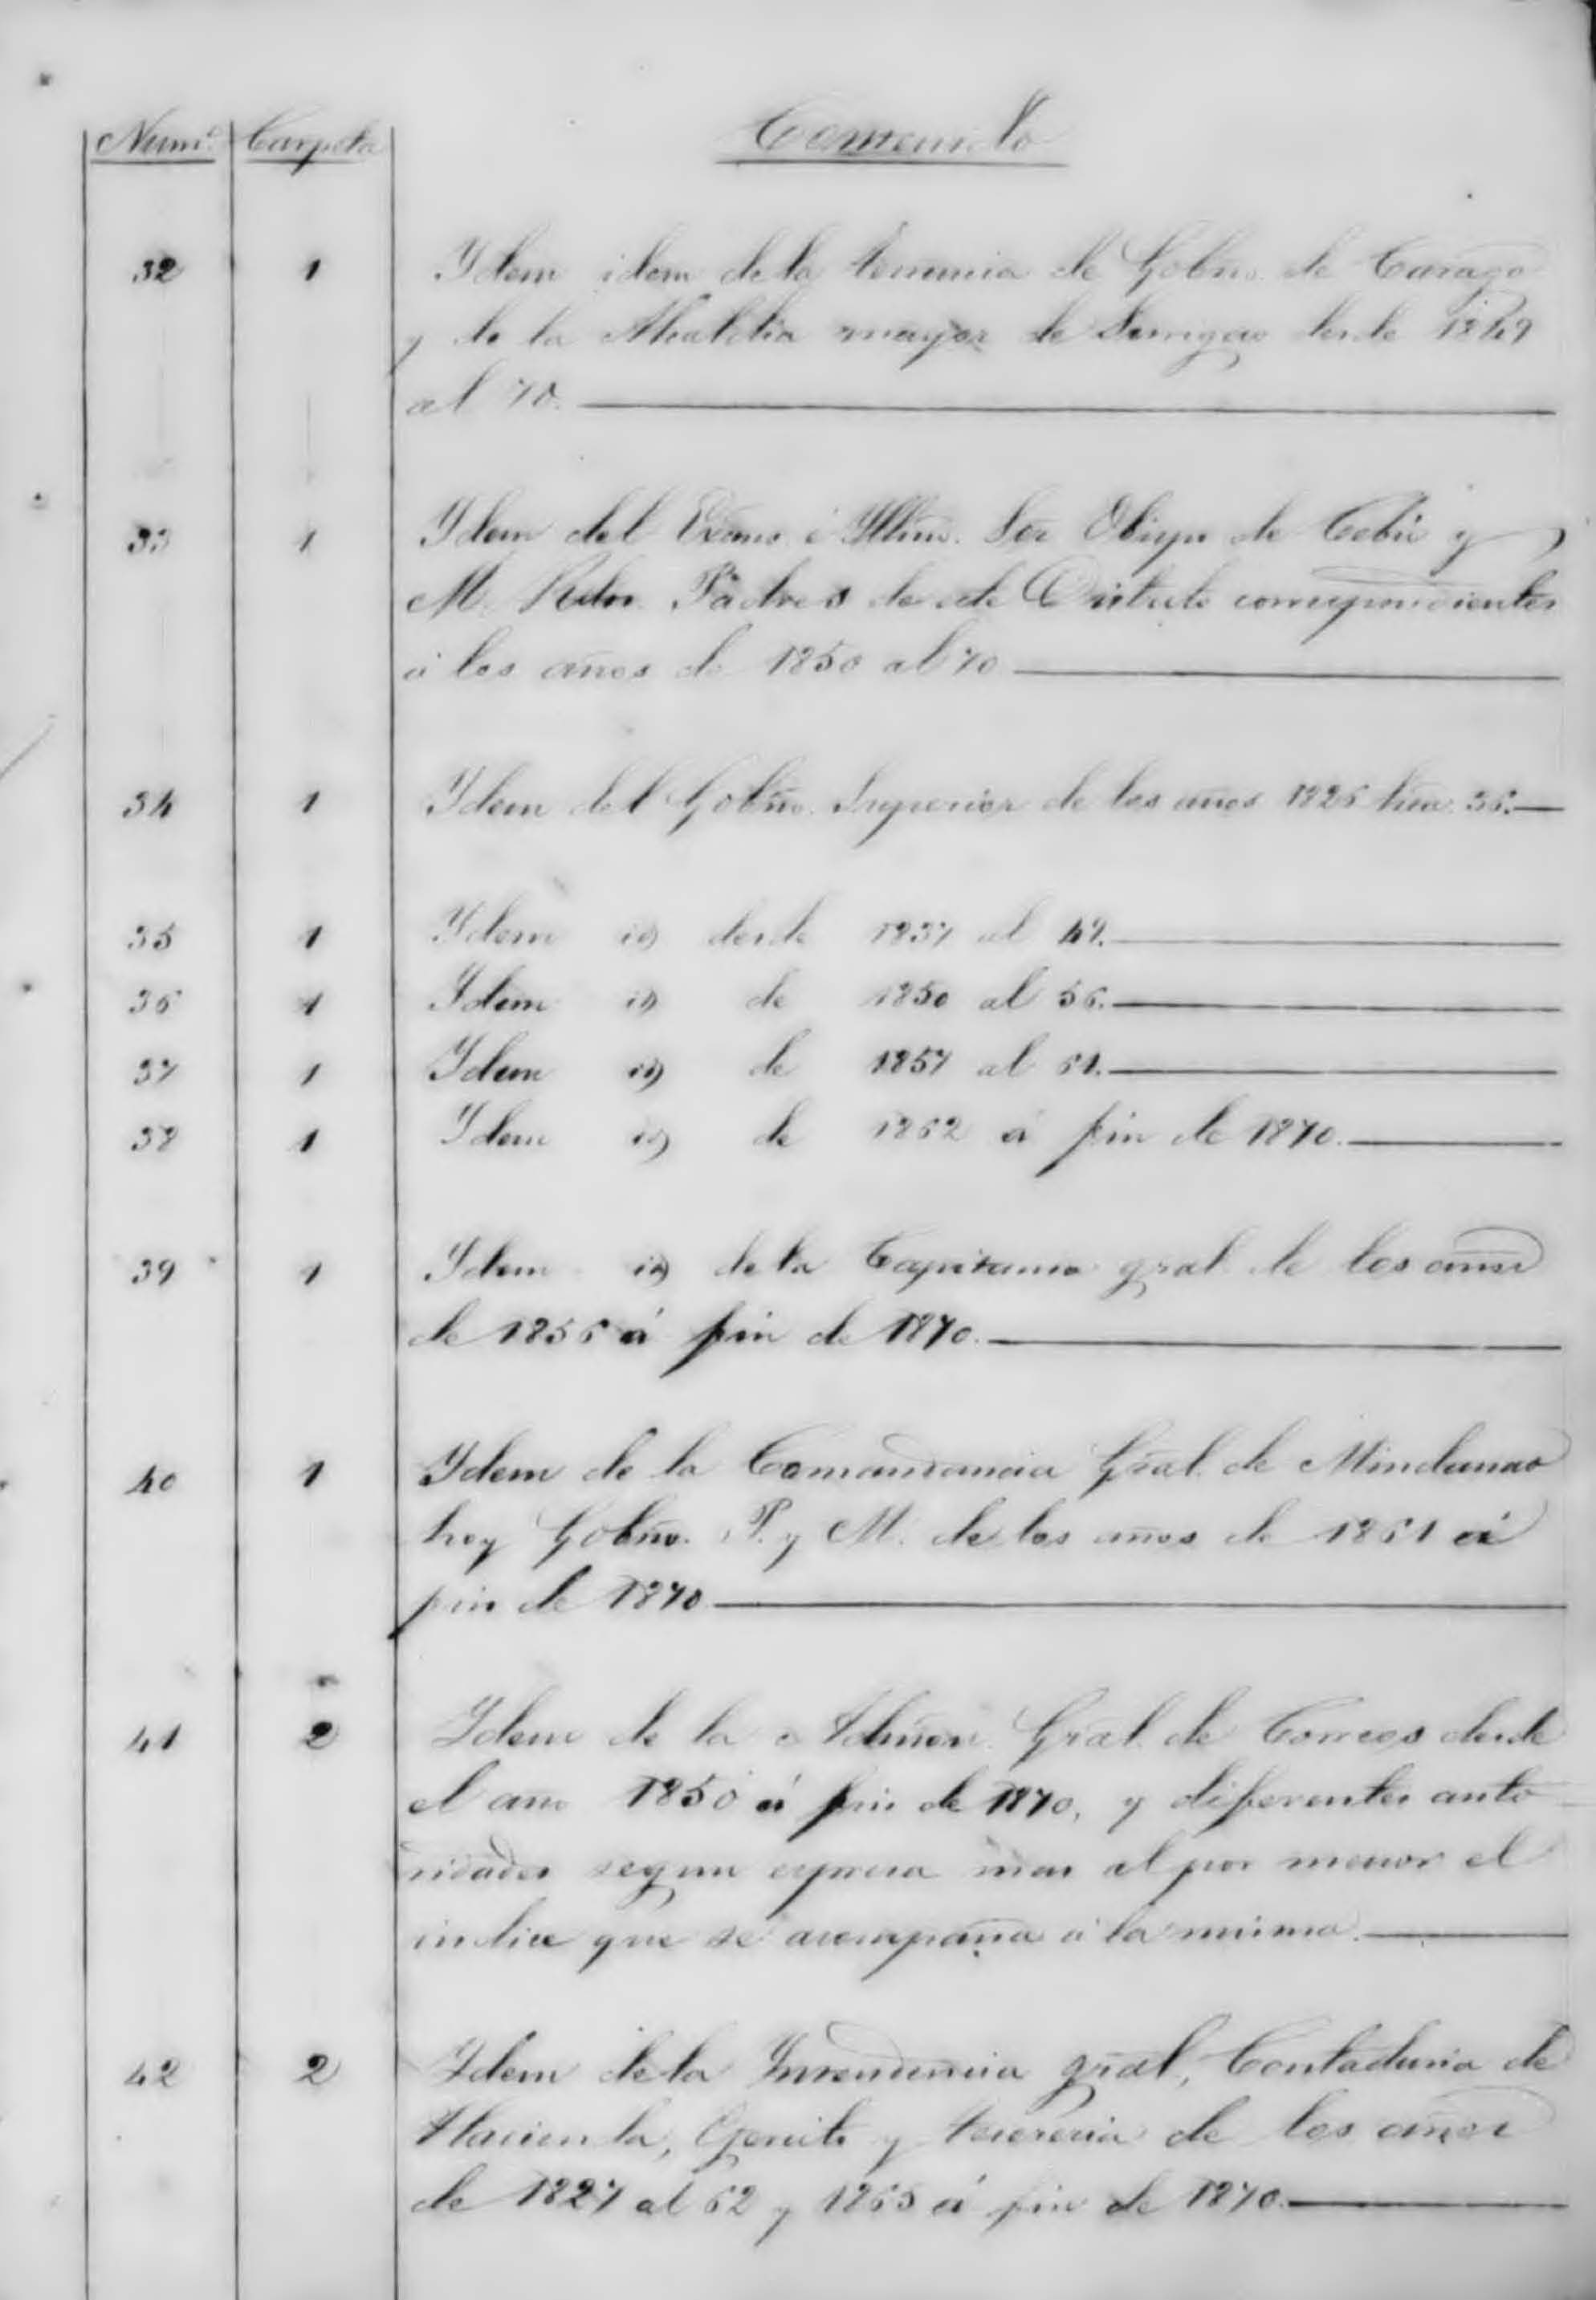 Num.º Carpeta Contenido
32 1 Ydem idem de la tenencia de Gobno. de Caraga
y de la Alcaldia mayor de Surigao desde 1849
al 70.
33 1 Ydem del Excmo. é Yltmo. Sor Obispo de Cebú y
M. Rdos. Padres de este Distrito correspondientes
á los años de 1850 al 70
34 1 Ydem del Gobño. Superior de los años 1826 36.
35 1 Ydem id desde 1837 al 49.
36 1 Ydem id de 1850 al 56.
37 1 Ydem id de 1857 al 61.
38 1 Ydem id de 1862 á fin de 1870.
39 1 Ydem id de la Capitania gral. de los años
de 1856 á fin de 1870.
40 1 Ydem de la Comandancia Gral. de Mindanao
hoy Gobño. P. y M. de los años de 1861 á
fin de 1870
41 2 Ydem de la Admon. Gral. de Correos desde
el año 1850 á fin de 1870, y diferentes auto
ridades segun expresa mas al por menor el
indice que se acompaña á la misma.
42 2 Ydem de la Yntendencia gral, Contaduria de
Hacienda, Ejercito y tesoreria de los años
de 1827 al 62 y 1865 á fin de 1870.